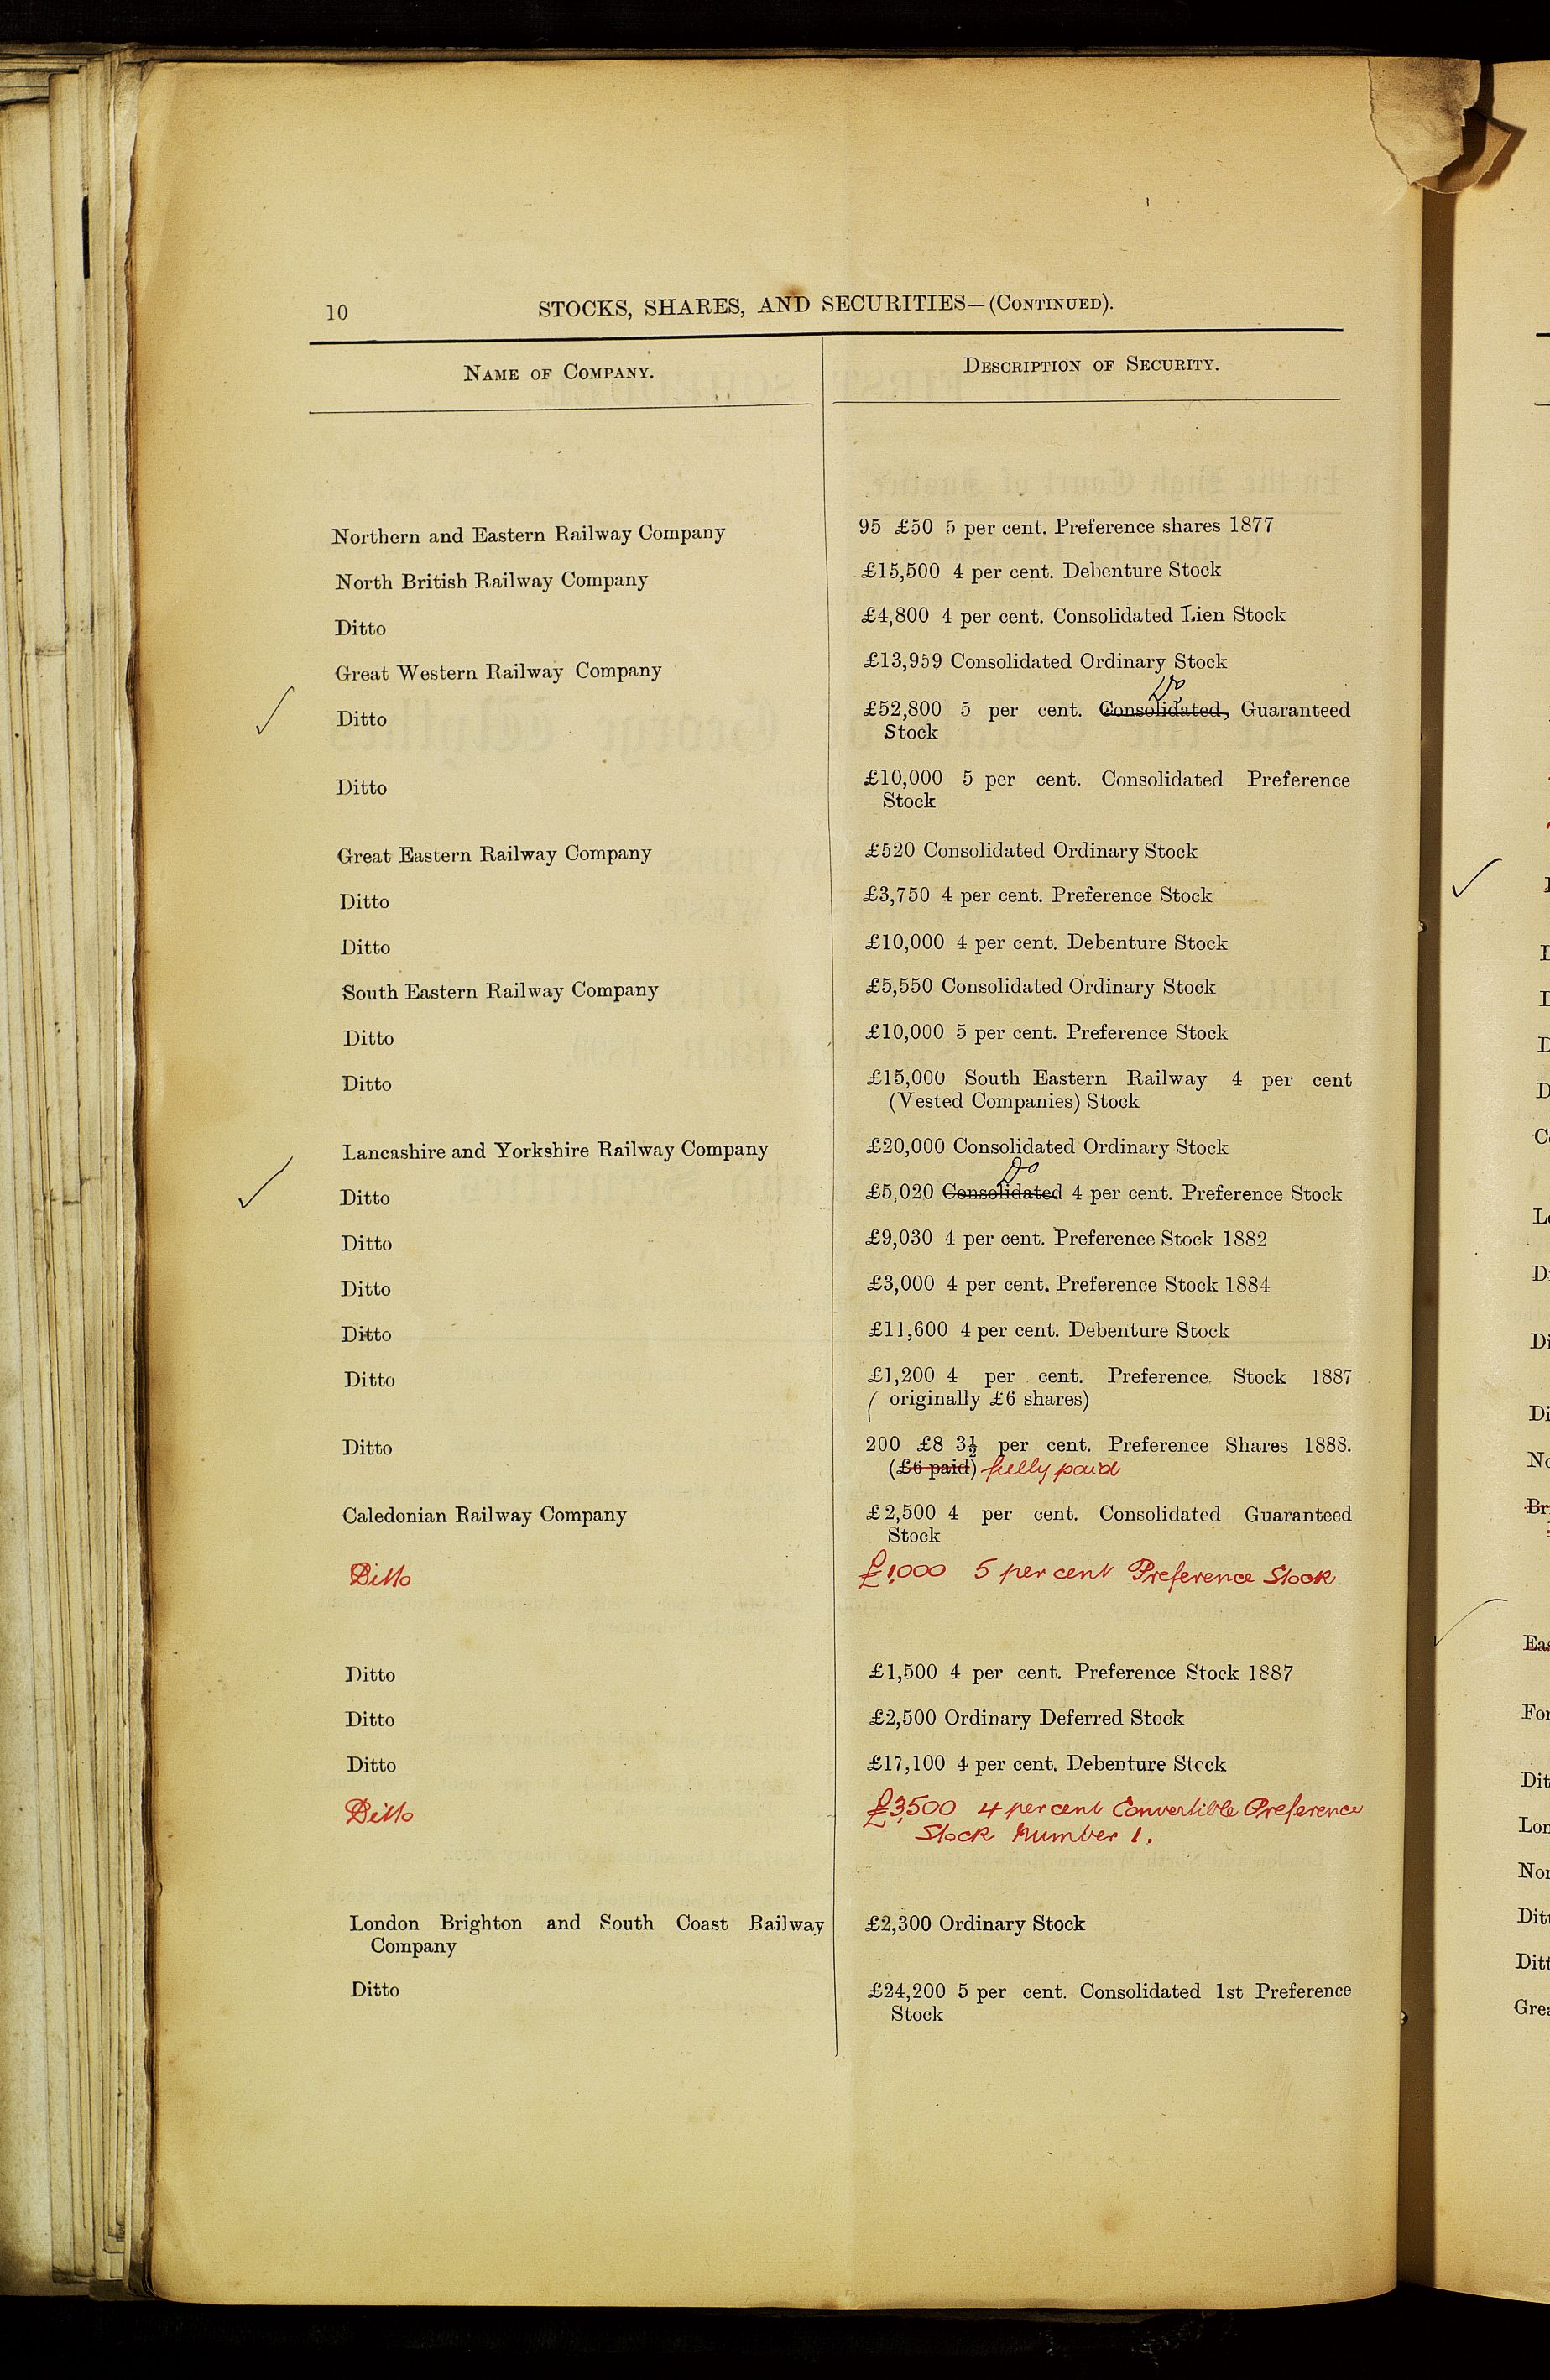 10 STOCKS, SHARES, AND SECURITIES—(CONTINUED).
NAME OF COMPANY. DESCRIPTION OF SECURITY.
Northern and Eastern Railway Company 95 £50 5 per cent. Preference shares 1877
North British Railway Company £15,500 4 per cent. Debenture Stock
Ditto £4,800 4 per cent. Consolidated Lien Stock
Great Western Railway Company £13,959 Consolidated Ordinary Stock
Do
Ditto £52,800 5 per cent. Consolidated, Guaranteed
Stock
Ditto £10,000 5 per cent. Consolidated Preference
Stock
Great Eastern Railway Company £520 Consolidated Ordinary Stock
Ditto £3,750 4 per cent. Preference Stock
Ditto £10,000 4 per cent. Debenture Stock
South Eastern Railway Company £5,550 Consolidated Ordinary Stock
Ditto £10,000 5 per cent. Preference Stock
Ditto £15,000 South Eastern Railway 4 per cent
(Vested Companies) Stock
Lancashire and Yorkshire Railway Company £20,000 Consolidated Ordinary Stock
Do
Ditto £5,020 Consolidated 4 per cent. Preference Stock
Ditto £9,030 4 per cent. Preference Stock 1882
Ditto £3,000 4 per cent. Preference Stock 1884
Ditto £11,600 4 per cent. Debenture Stock
Ditto £1,200 4 per cent. Preference Stock 1887
( originally £6 shares)
Ditto 200 £8 3½ per cent. Preference Shares 1888.
(£6 paid) fully paid
Caledonian Railway Company £2,500 4 per cent. Consolidated Guaranteed
Stock
Ditto £1,000 5 per cent Preference Stock
Ditto £1,500 4 per cent. Preference Stock 1887
Ditto £2,500 Ordinary Deferred Stock
Ditto £17,100 4 per cent. Debenture Stock
Ditto £3,500 4 per cent Convertible Preference
Stock Number 1.
London Brighton and South Coast Railway £2,300 Ordinary Stock
Company
Ditto £24,200 5 per cent. Consolidated 1st Preference
Stock